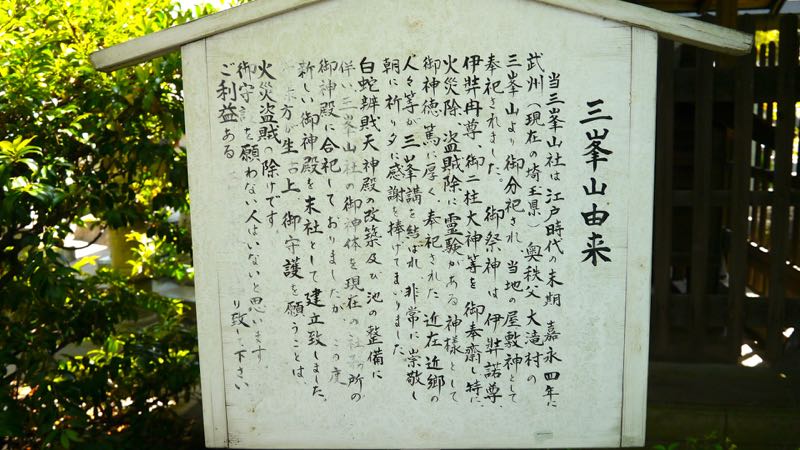 三峯山由来
当三峯山社は江戸時代の末期 嘉永四年に
武州（現在の埼玉県）奥秩父 大滝村の
三峯山より御分祀され 当地の屋敷神として
奉祀されました。 御祭神は 伊弉諾尊、
伊弉冉尊、御二柱大神等を 御奉斎し 特に、
火災除、盗賊除に霊験がある神様として
御神徳 篤に厚く、奉祀された 近在 近郷の
人々等が 三峯講を 結ばれ 非常に崇敬し
朝に祈り夕に感謝を捧げてまいりました。
白蛇辨賦天神殿の改築及び 池の整備に
伴い 三峯山社の御神体を 現在の 所の
御神殿に合祀しておりましたが この度
新しい御神殿を 末社として 建立致しました、
方が 生 上 御守護を願うことは
火災盗賊の除けです
御守 を願わない人はいないと思います
ご利益ある り致 下さい